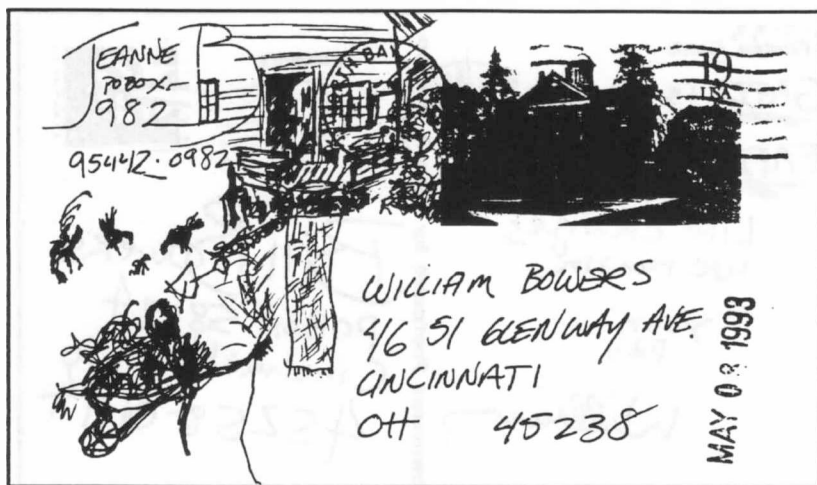 JEANNE
PO BOX-
982
95442-0982
19
USA
WILLIAM BOWERS
4651 GLENWAY AVE.
CINCINNATI
OH 45238
MAY 03 1993